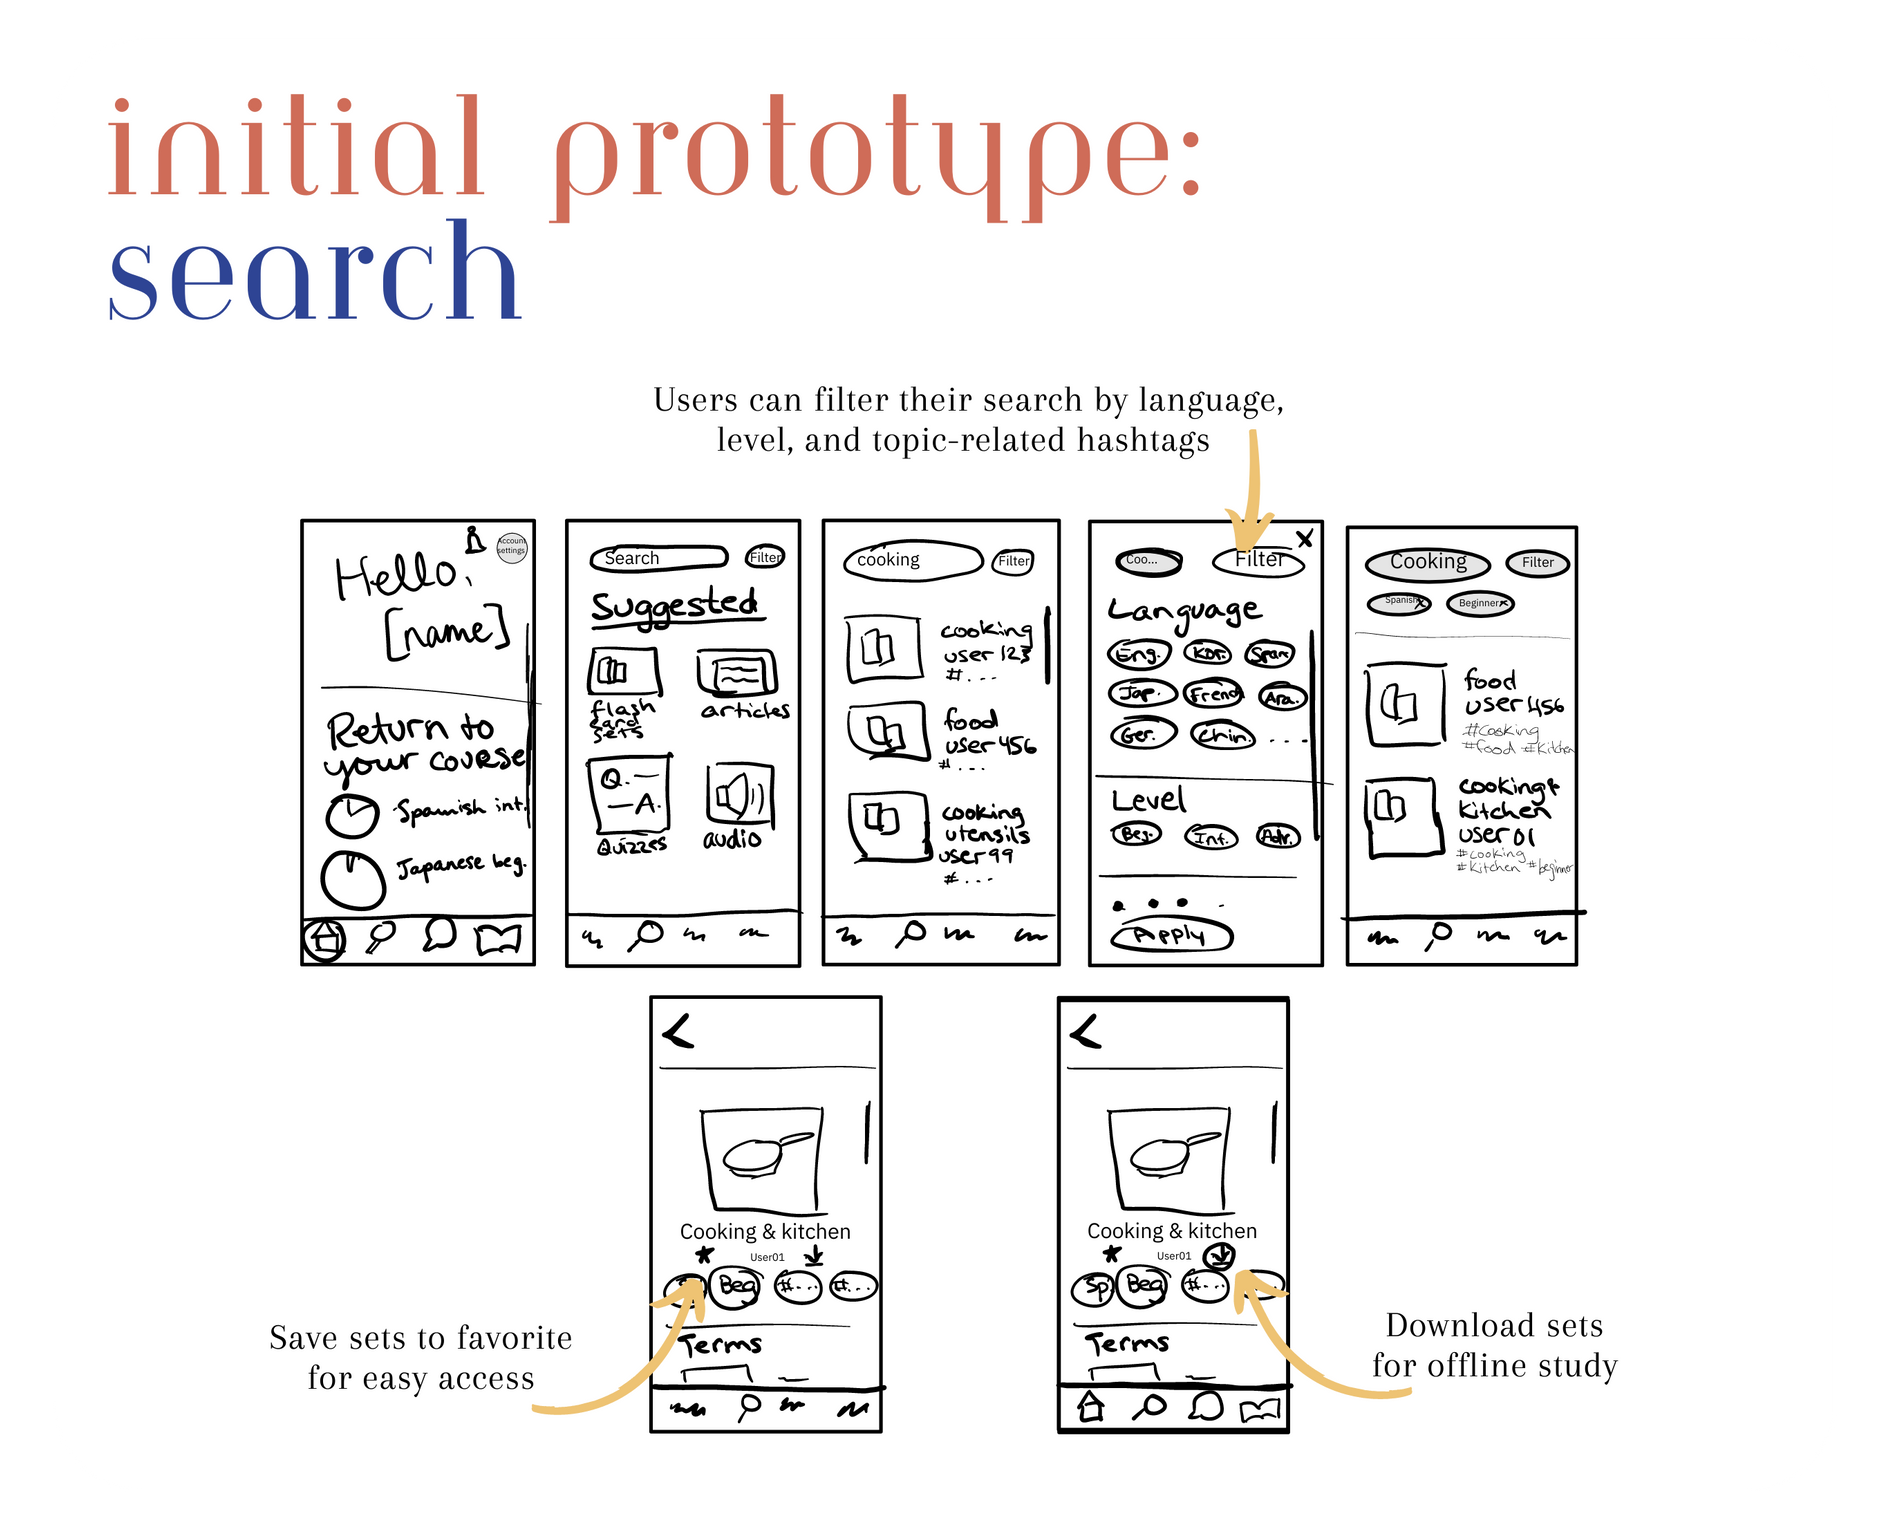 initial prototype:
search
Users can filter their search by language,
level, and topic-related hashtags
Account
settings
Hello,
[name]
Return to
your course
Spanish int.
Japanese beg.
Search
Filter
Suggested
flash
card
sets
articles
Q.
A.
Quizzes
audio
cooking
Filter
cooking
user 123
#...
food
user 456
#...
cooking
utensils
user 99
#...
Coo...
Filter
X
Language
Eng.
Kor.
Span
Jap.
French
Ara.
Ger.
Chin.
....
Level
Beg.
Int.
Adv.
Apply
Cooking
Filter
Spanish x
Beginner x
food
user 456
#Cooking
#food #Kitchen
cooking &
kitchen
user 01
#cooking
#kitchen #beginner
Cooking & kitchen
User01
Beg
#...
#...
Terms
Cooking & kitchen
User01
Sp.
Beg
#...
Terms
Save sets to favorite
for easy access
Download sets
for offline study